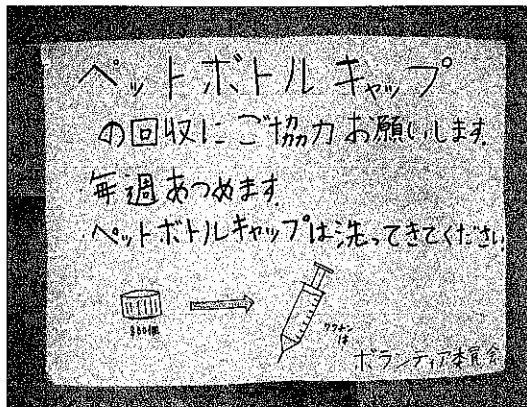 ペットボトルキャップ
の回収にご協力お願いします。
毎週あつめます。
ペットボトルキャップは洗ってきてください
ワクチン
ボランティア委員会